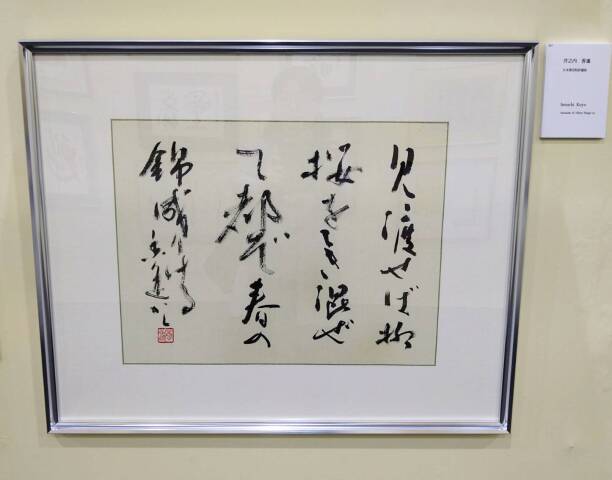 見渡せば柳
桜をこき混ぜ
て都ぞ春の
錦成りける
井之内
Inouchi Koyo